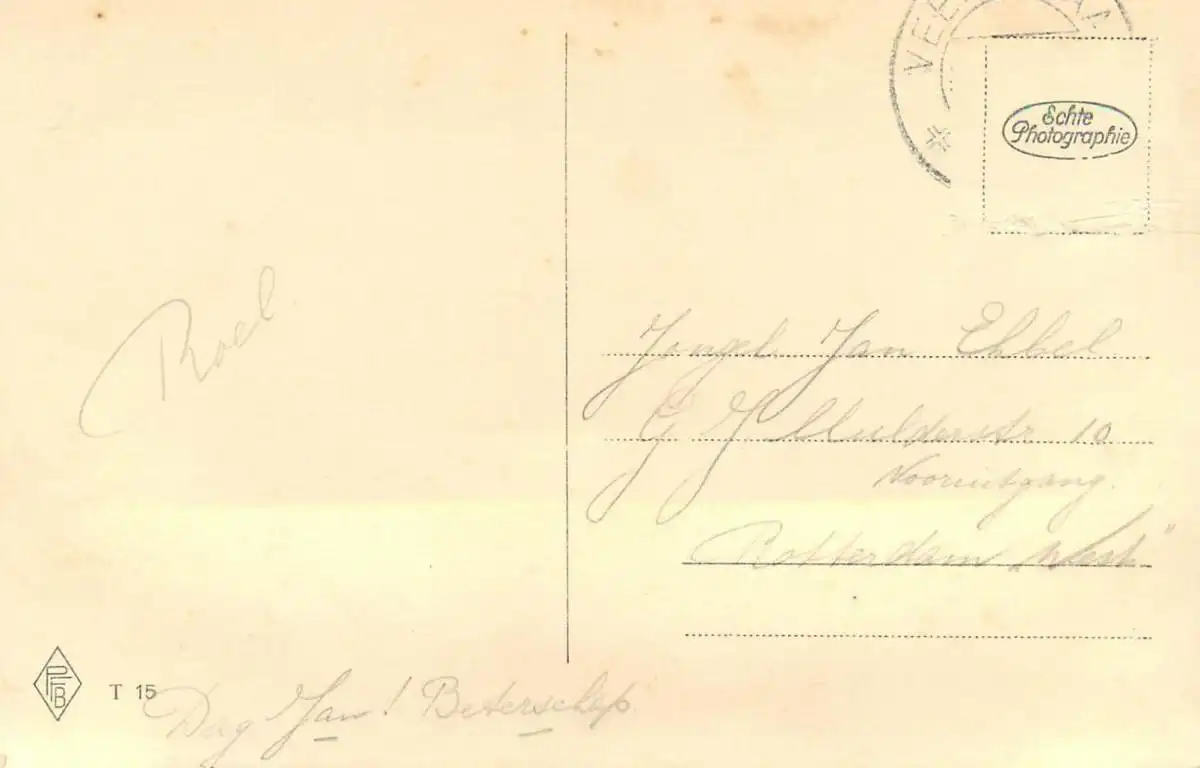 VEE
Echte
Photographie
Roel
Jongel. Jan Ebbel
G J Mulderstr 10
Vooruitgang.
Rotterdam „West"
PFB
T 15
Dag Jan! Beterschap